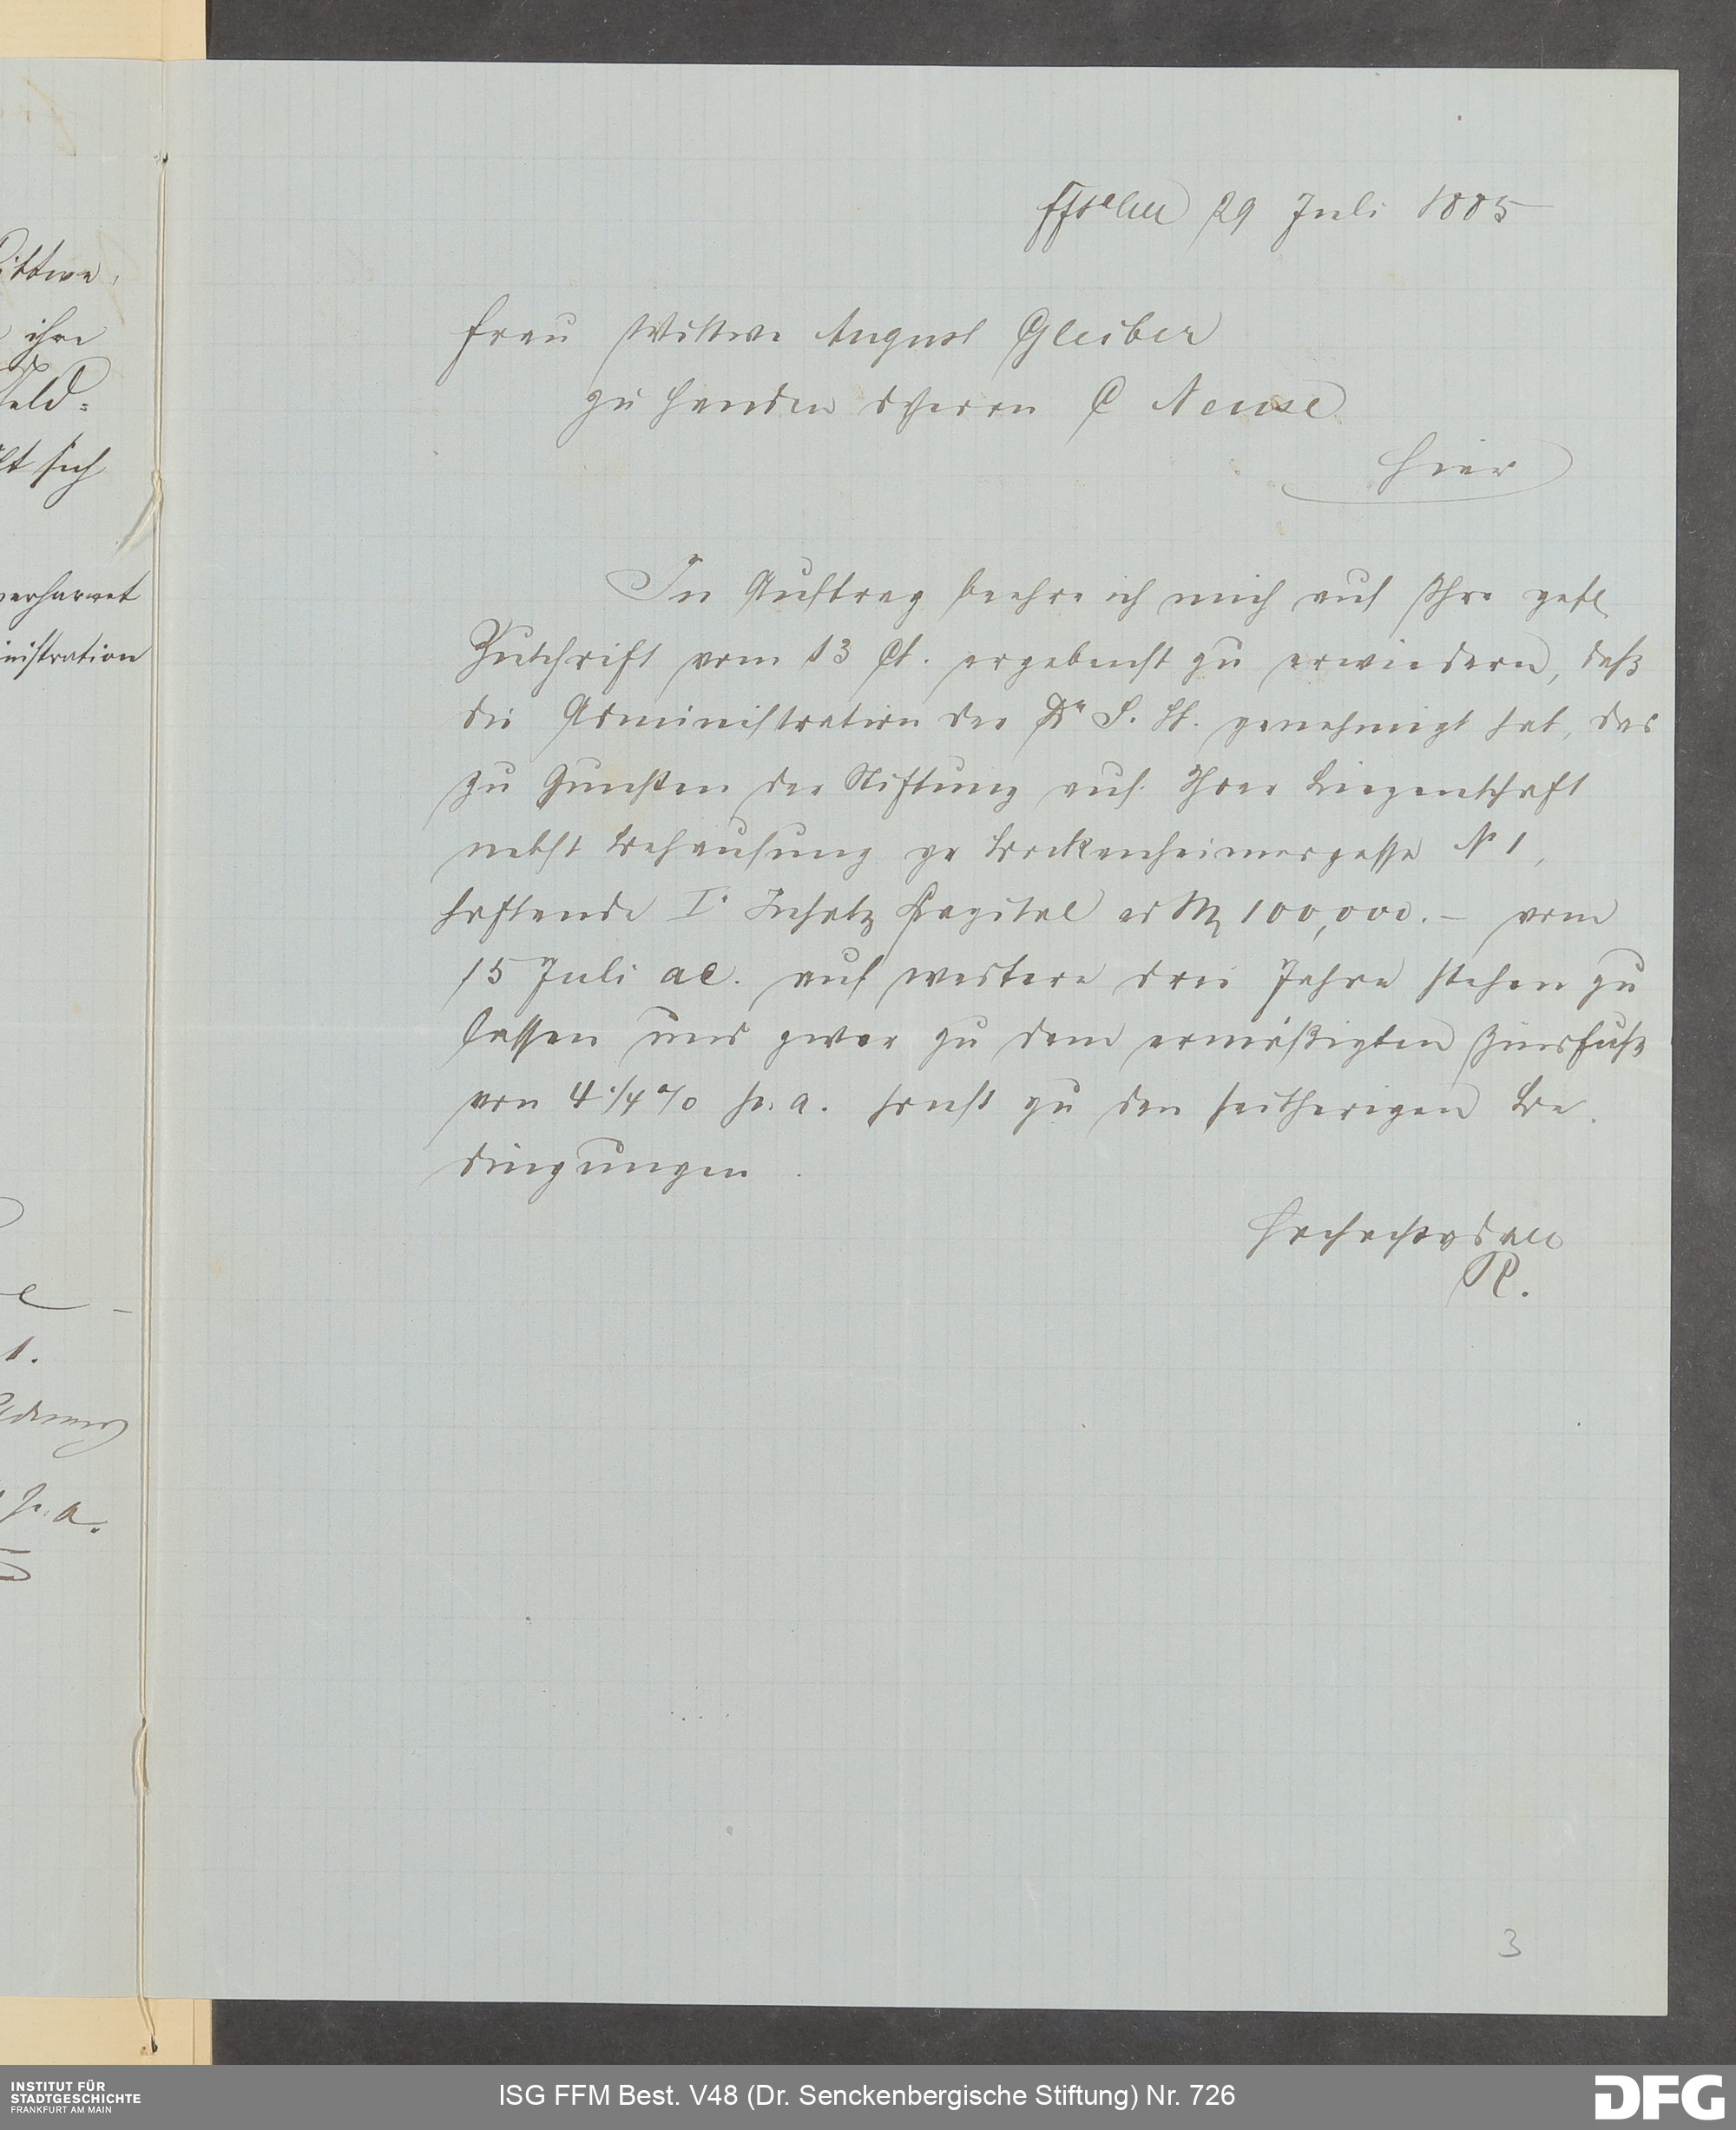 ittwe,
ihre
Feld=
lt sich
verharret
inistration
1.
p. a.
29 Juli 1885
Frau Wittwe August Gleiber
zu Handen d Herrn C Neuse
Hier
In Auftrag beehre ich mich auf Ihre gefl
Zuschrift vom 13 Ct. ergebenst zu erwiedern, daß
die Administration der Dr S. St. genehmigt hat, das
zu Gunsten der Stiftung auf Ihrer Liegenschaft
nebst Behausung gr Bockenheimergasse No 1,
haftende Ir Insatz Capital ad M 100,000.– vom
15 Juli ac. auf weitere drei Jahre stehen zu
lassen und zwar zu dem ermäßigten Zinsfuß
von 4 1/4 % p. a. sonst zu den seitherigen Be
dingungen.
R.
3
INSTITUT FÜR
STADTGESCHICHTE
FRANKFURT AM MAIN
ISG FFM Best. V48 (Dr. Senckenbergische Stiftung) Nr. 726
DFG